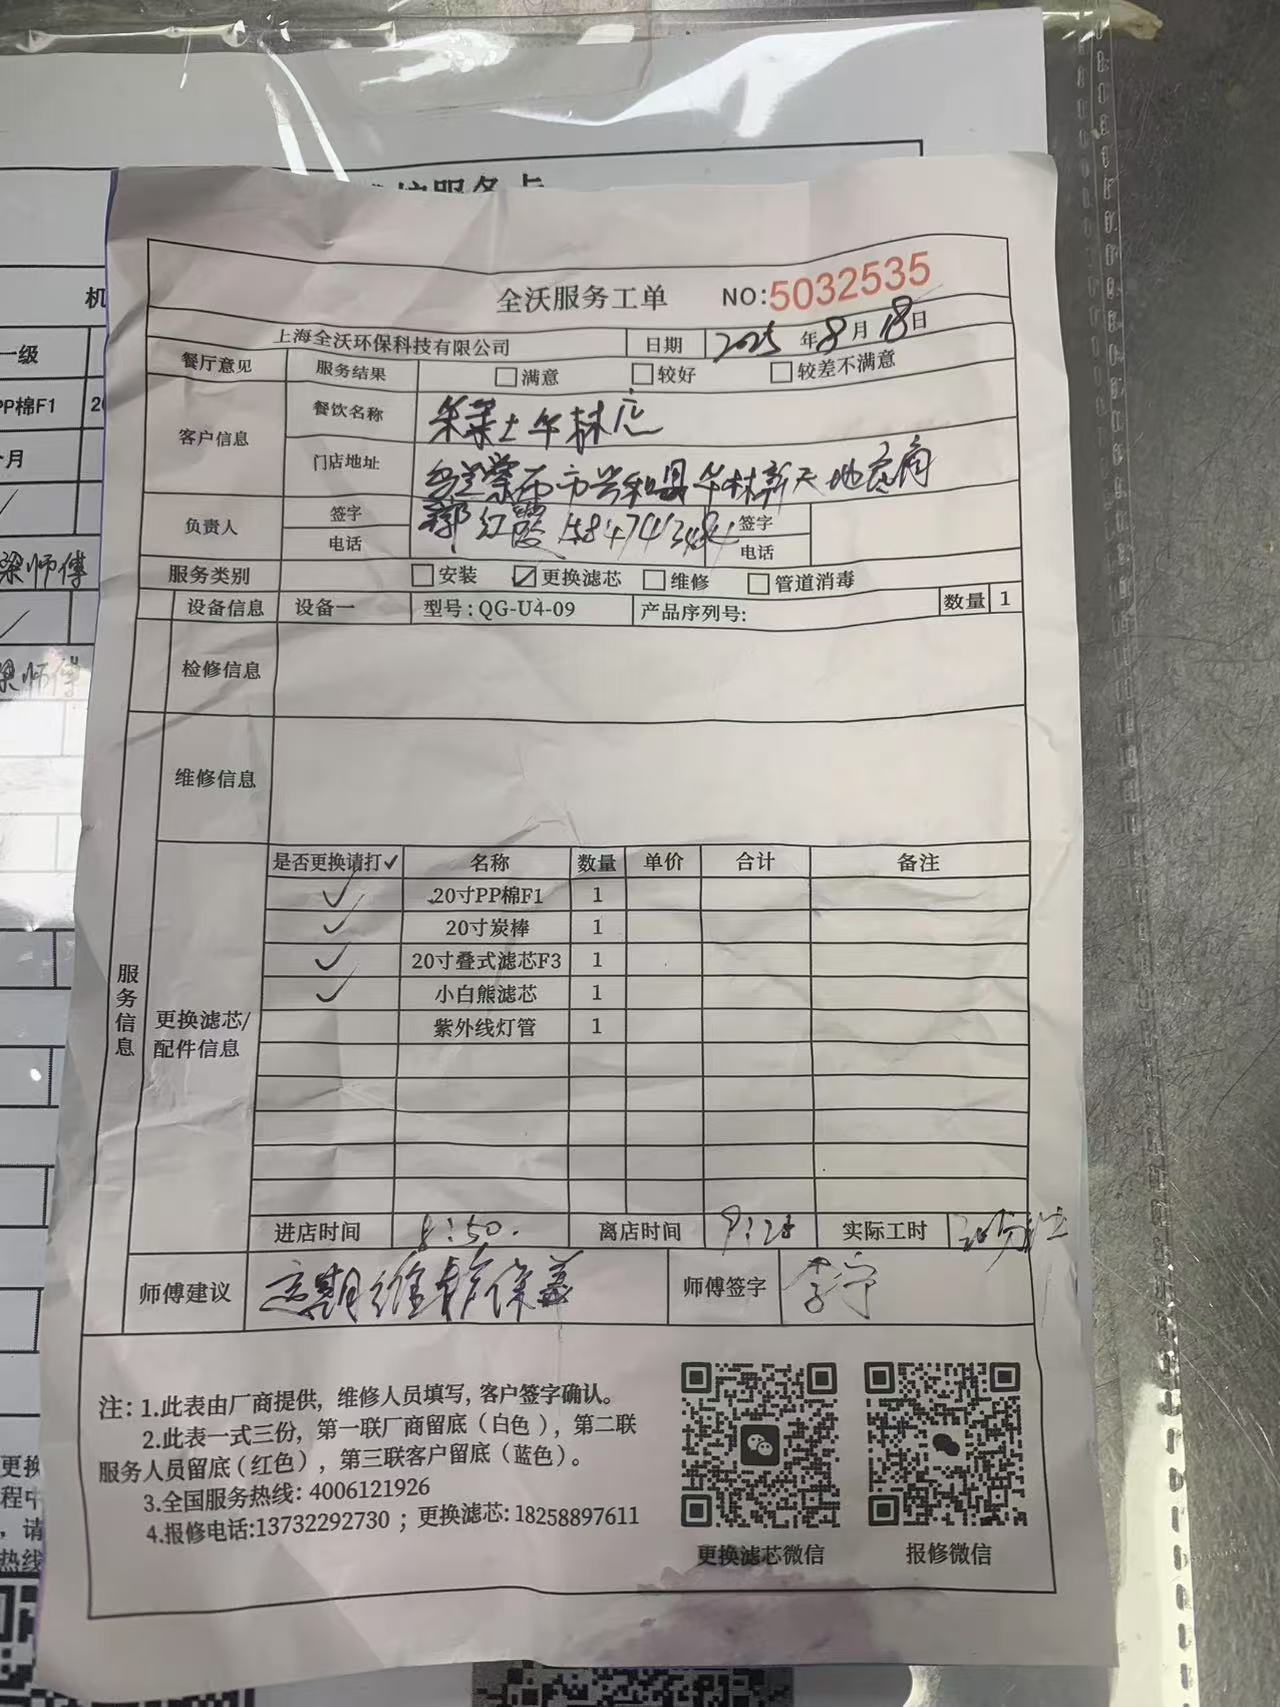 护服务卡
全沃服务工单 NO:5032535
上海全沃环保科技有限公司 日期 2025年8月18日
餐厅意见 服务结果 □满意 □较好 □较差不满意
客户信息 餐饮名称 华莱士华林店
门店地址 乌兰察布市兴和县华林新天地底角
负责人 签字 郭红霞 签字
电话 电话
服务类别 □安装 ☑更换滤芯 □维修 □管道消毒
设备信息 设备一 型号:QG-U4-09 产品序列号: 数量 1
检修信息
维修信息
服务信息
更换滤芯/
配件信息
是否更换请打✓ 名称 数量 单价 合计 备注
✓ 20寸PP棉F1 1
✓ 20寸炭棒 1
✓ 20寸叠式滤芯F3 1
✓ 小白熊滤芯 1
紫外线灯管 1
进店时间 8:50. 离店时间 9:20 实际工时 30分钟
师傅建议 定期维护保养 师傅签字 李宁
注: 1.此表由厂商提供, 维修人员填写, 客户签字确认。
2.此表一式三份, 第一联厂商留底(白色), 第二联
服务人员留底(红色), 第三联客户留底(蓝色)。
3.全国服务热线: 4006121926
4.报修电话:13732292730 ; 更换滤芯: 18258897611
更换滤芯微信 报修微信
机
一级
PP棉F1 20
个月
梁师傅
梁师傅
更换
程中
, 请
热线